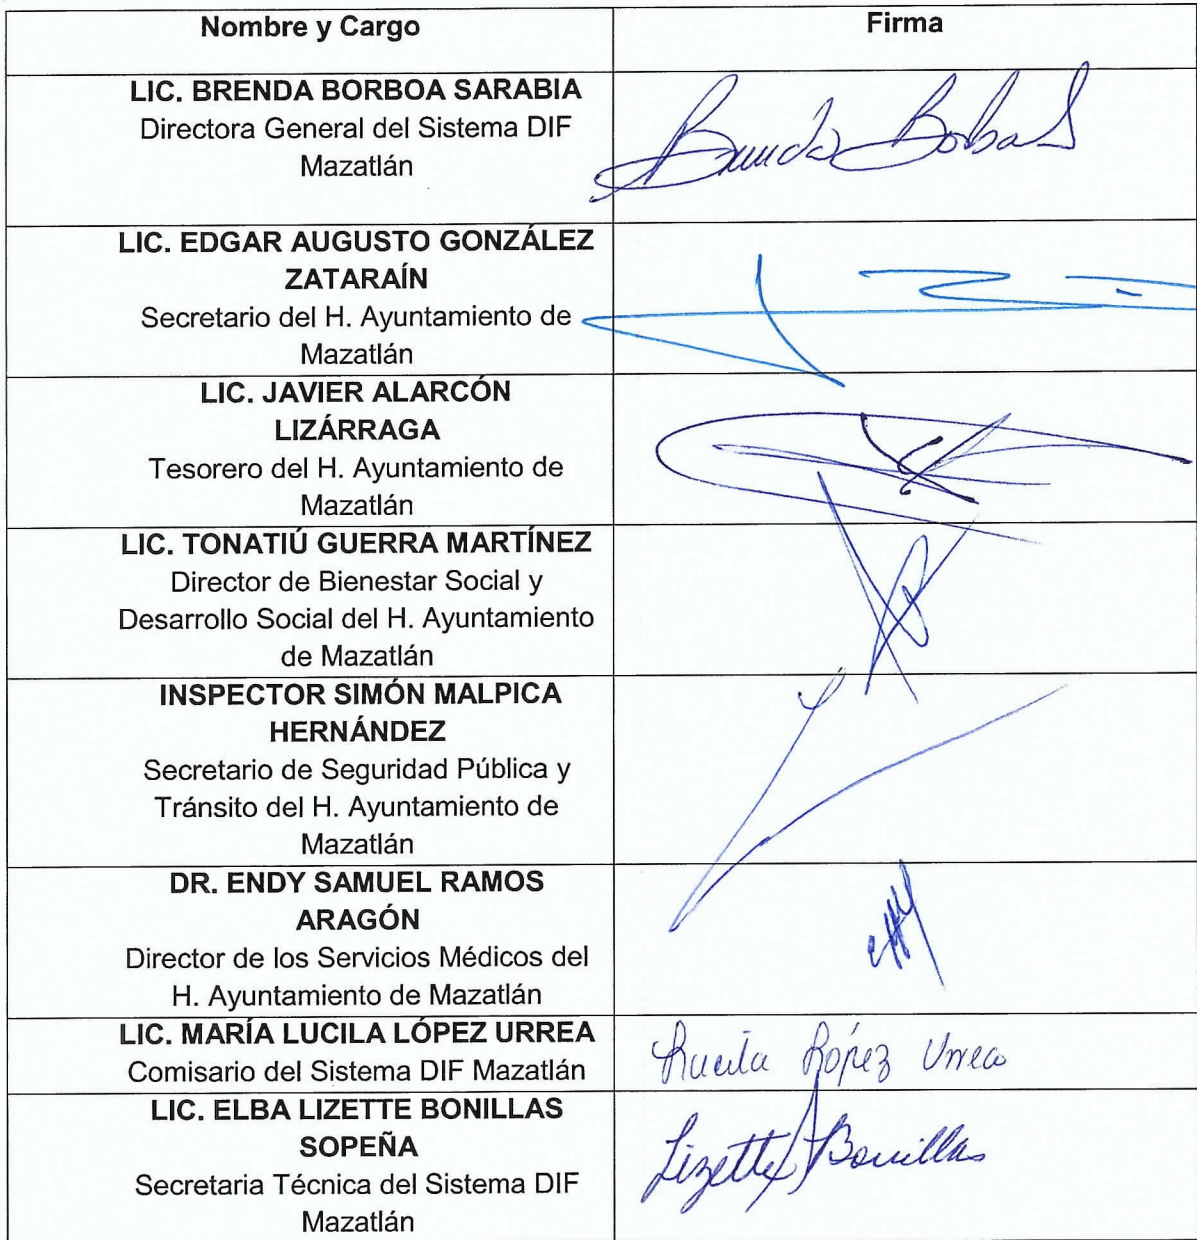 Nombre y Cargo
Firma
LIC. BRENDA BORBOA SARABIA
Directora General del Sistema DIF
Mazatlán
Brenda Borboa S
LIC. EDGAR AUGUSTO GONZÁLEZ
ZATARAÍN
Secretario del H. Ayuntamiento de
Mazatlán
LIC. JAVIER ALARCÓN
LIZÁRRAGA
Tesorero del H. Ayuntamiento de
Mazatlán
LIC. TONATIÚ GUERRA MARTÍNEZ
Director de Bienestar Social y
Desarrollo Social del H. Ayuntamiento
de Mazatlán
INSPECTOR SIMÓN MALPICA
HERNÁNDEZ
Secretario de Seguridad Pública y
Tránsito del H. Ayuntamiento de
Mazatlán
DR. ENDY SAMUEL RAMOS
ARAGÓN
Director de los Servicios Médicos del
H. Ayuntamiento de Mazatlán
LIC. MARÍA LUCILA LÓPEZ URREA
Comisario del Sistema DIF Mazatlán
Lucila López Urrea
LIC. ELBA LIZETTE BONILLAS
SOPEÑA
Secretaria Técnica del Sistema DIF
Mazatlán
Lizette Bonillas